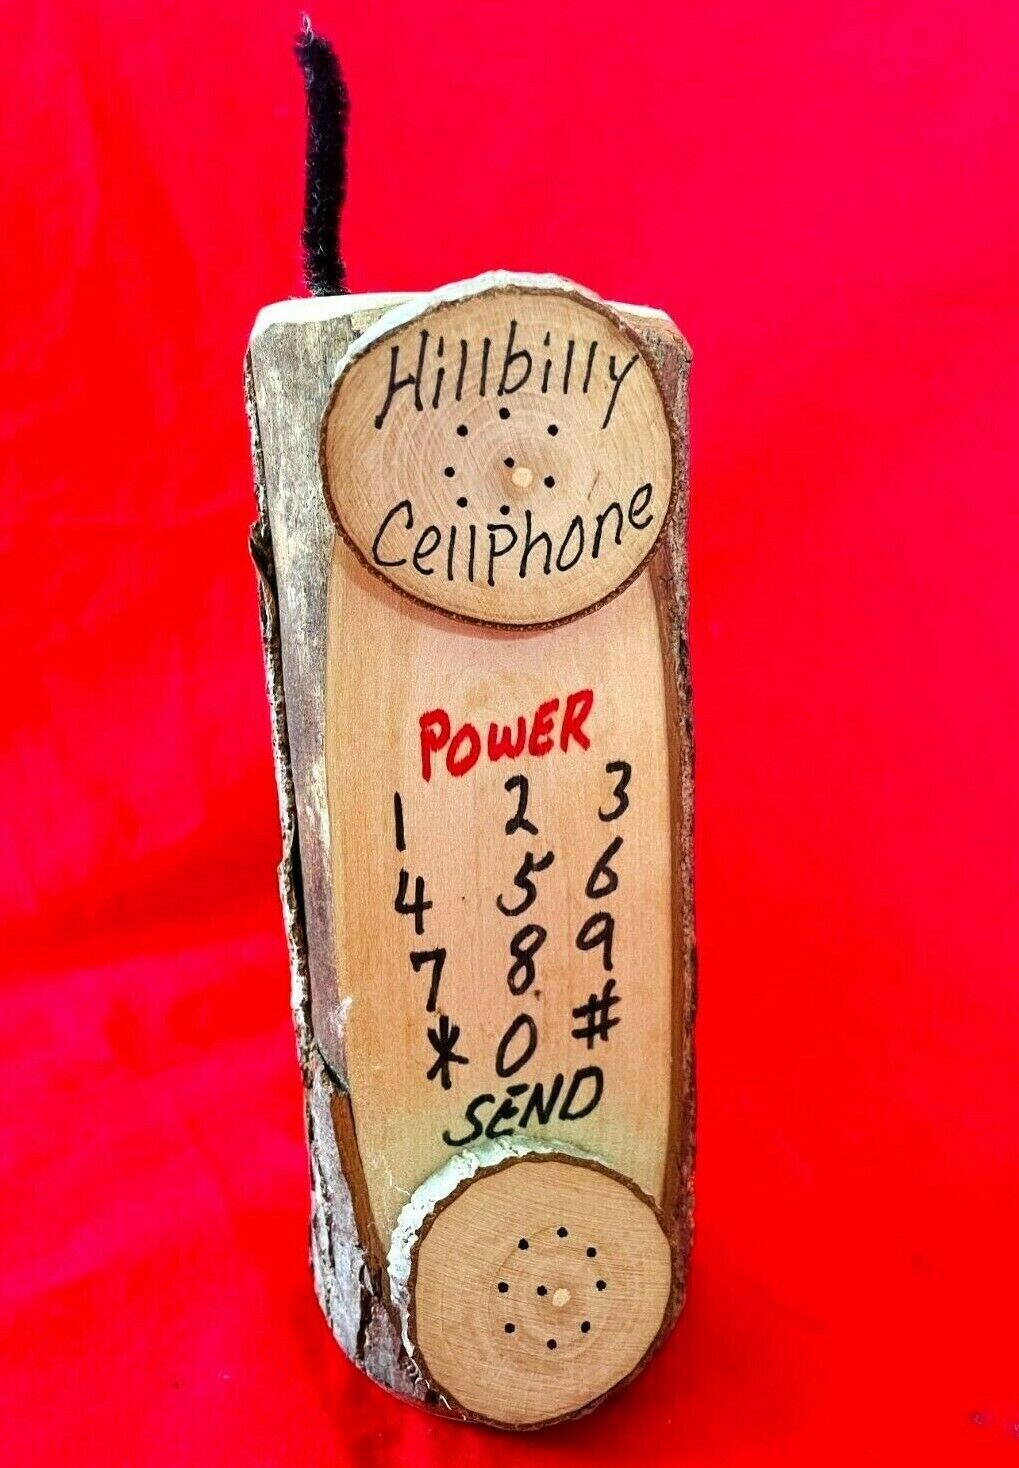 Hillbilly
Cellphone
POWER
1 2 3
4 5 6
7 8 9
* 0 #
SEND